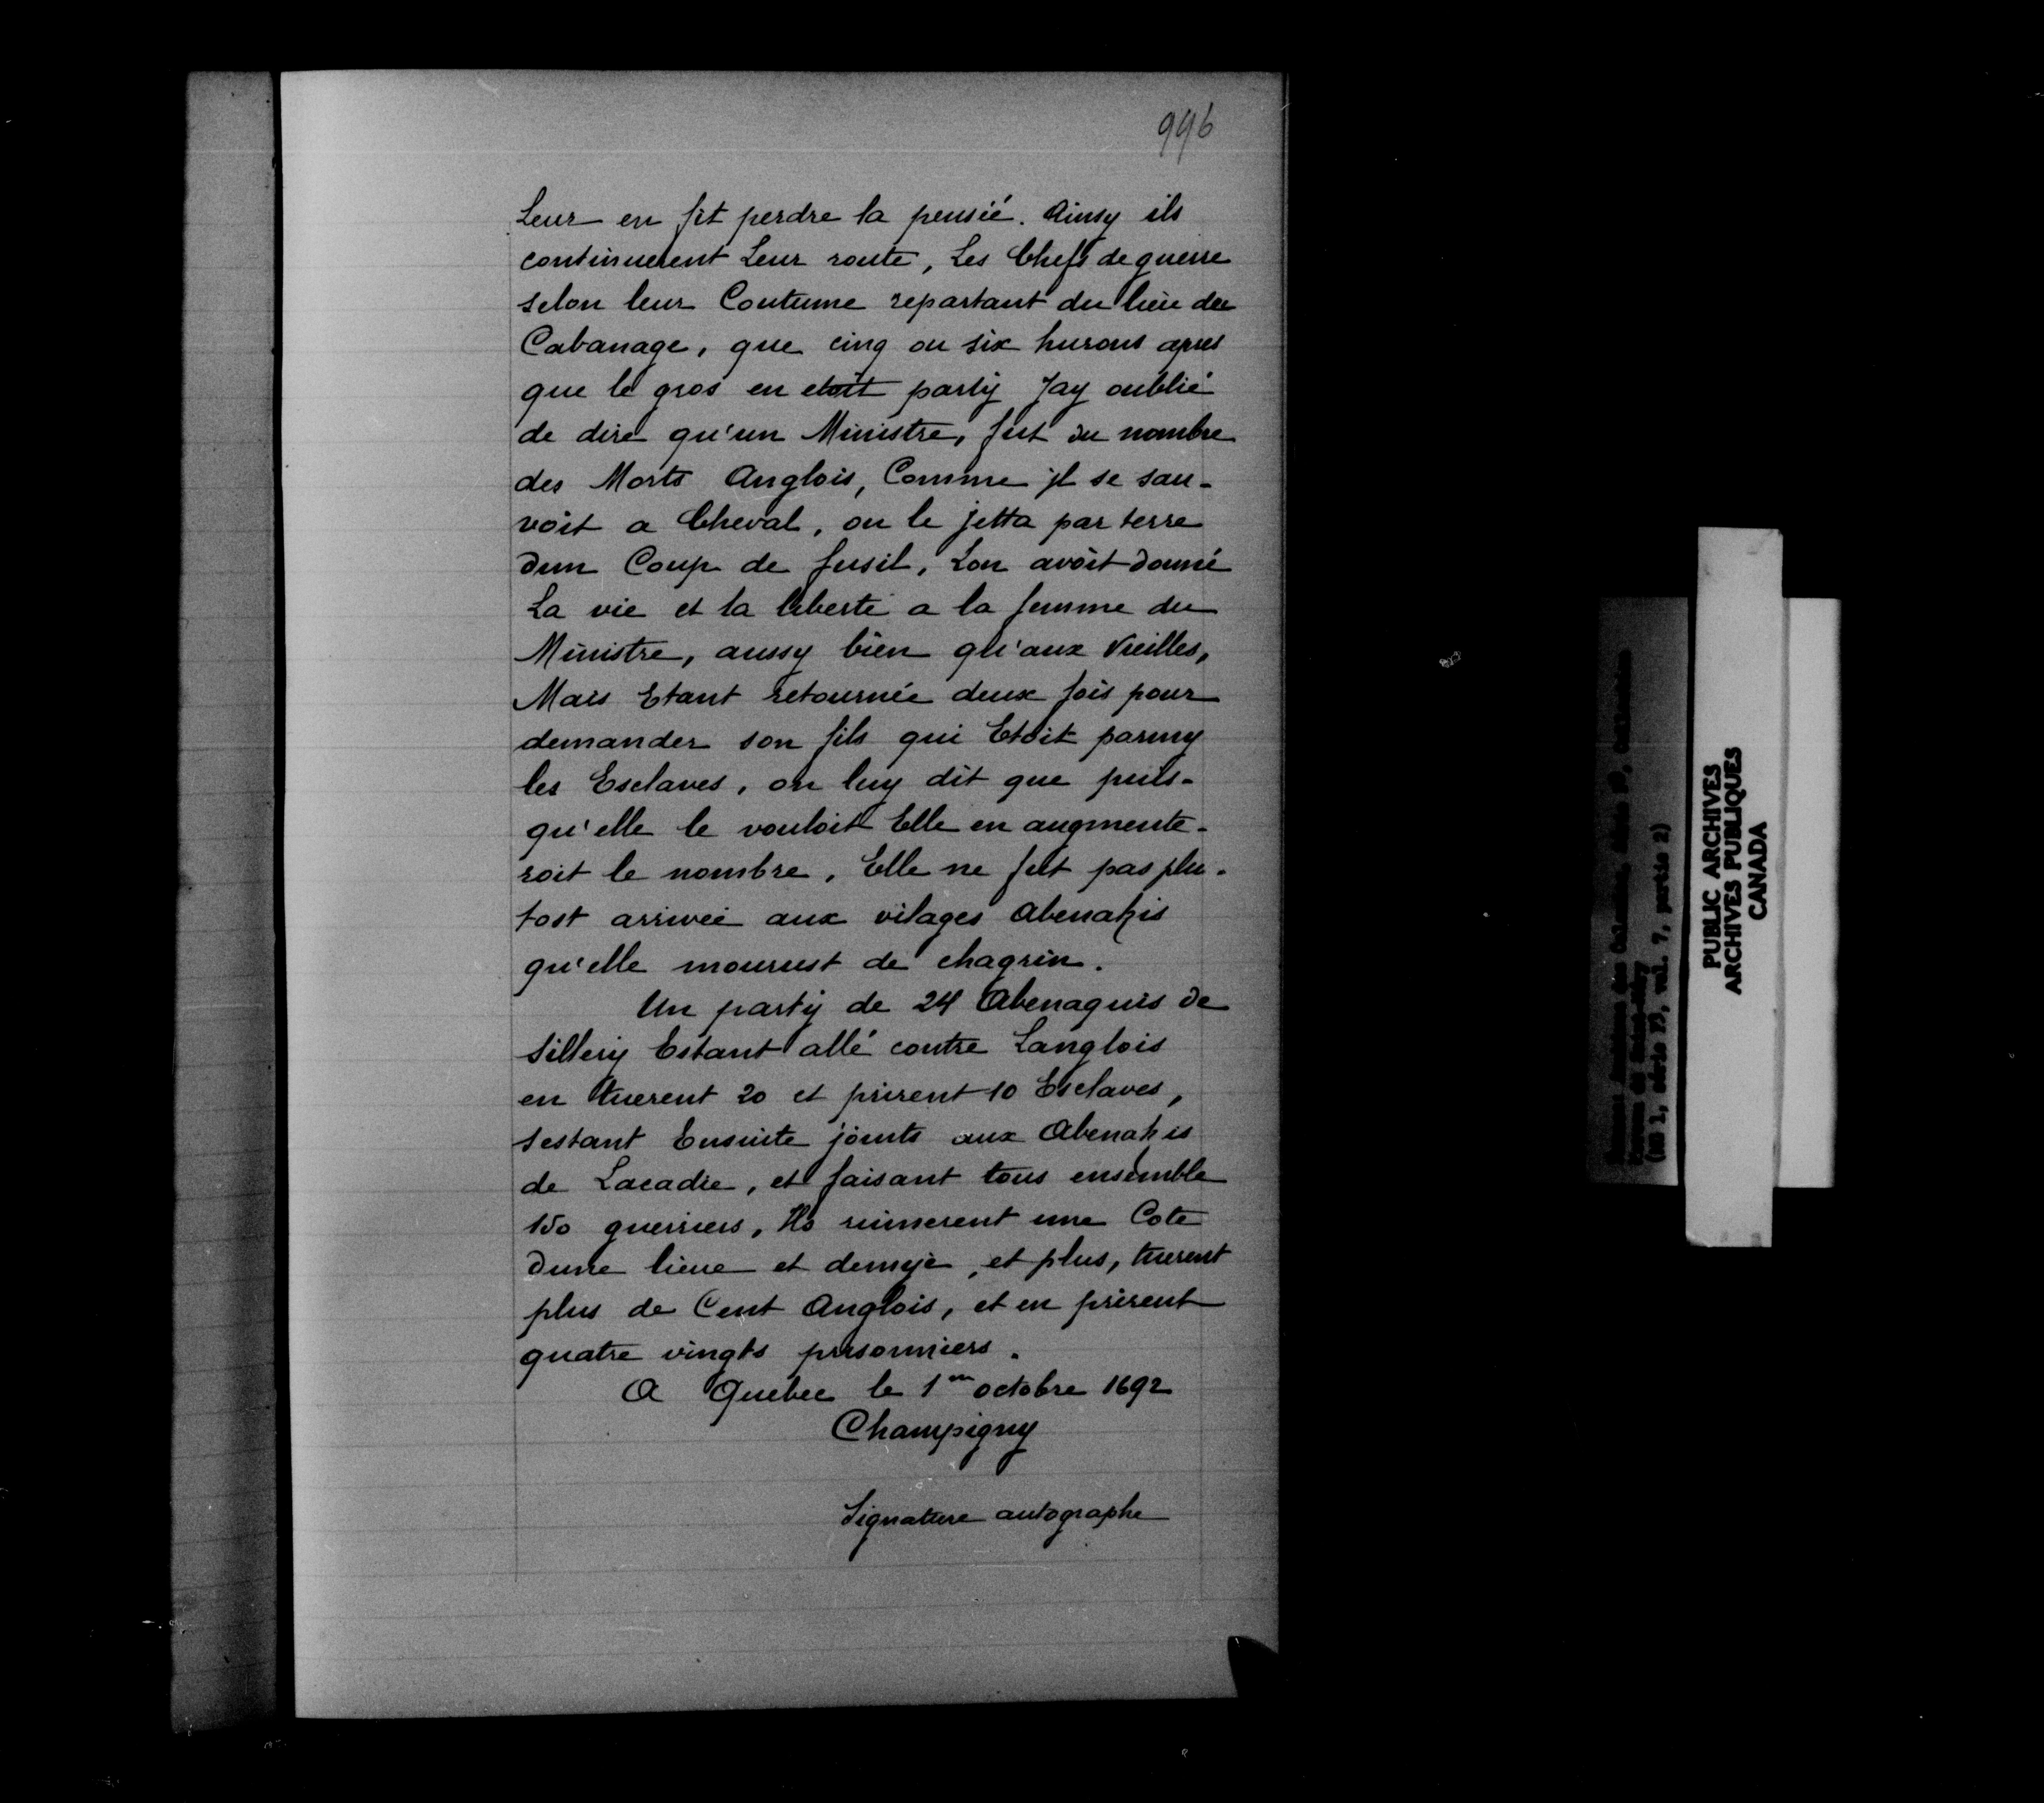 996
Leur en fit perdre la pensié. Ainsy ils
continuerent Leur route, Les Chefs de guerre
selon leur Coutume repartant du lieu du
Cabanage, que cinq ou six hurons apres
que le gros en etoit party Jay oublié
de dire qu'un Ministre, fut du nombre
des Morts Anglois, Comme jl se sau-
voit a Cheval, on le jetta par terre
dun Coup de fusil, Lon avoit donné
La vie et la liberté a la femme du
Ministre, aussy bien qu'aux Vieilles,
Mais Etant retournée deux fois pour
demander son fils qui Etoit parmy
les Esclaves, on luy dit que puis-
qu'elle le vouloit Elle en augmente-
roit le nombre. Elle ne fut pas plu-
tost arrivée aux vilages abenakis
qu'elle mourust de chagrin.
Un party de 24 Abenaquis de
Sillery Estant allé contre Langlois
en tuerent 20 et prirent 10 Esclaves,
sestant Ensuite joints aux Abenakis
de Lacadie, et faisant tous ensemble
150 guerriers, Ils ruinerent une Cote
dune lieue et demeje, et plus, tuerent
plus de Cent Anglois, et en prirent
quatre vingts prisonniers.
A Quebec le 1er octobre 1692
Champigny
Signature autographe
PUBLIC ARCHIVES
ARCHIVES PUBLIQUES
CANADA
(MG 1, série F3, vol. 7, partie 2)